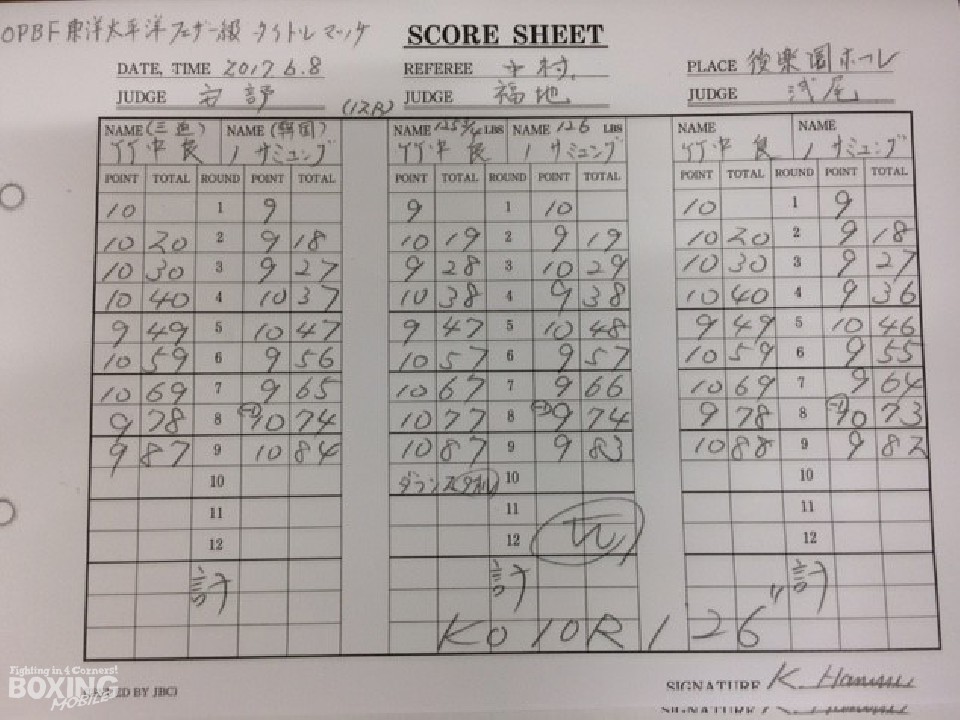 OPBF東洋太平洋フェザー級 タイトルマッチ SCORE SHEET
DATE, TIME 2017.6.8 REFEREE 中村 PLACE 後楽園ホール
JUDGE 安部 (12R) JUDGE 福地 JUDGE 浅尾
NAME (三迫) NAME (韓国) NAME 125 3/4 LBS NAME 126 LBS NAME NAME
竹中 良 ノ サミュング 竹中 良 ノ サミュング 竹中 良 ノ サミュング
POINT TOTAL ROUND POINT TOTAL POINT TOTAL ROUND POINT TOTAL POINT TOTAL ROUND POINT TOTAL
10 1 9 9 1 10 10 1 9
10 20 2 9 18 10 19 2 9 19 10 20 2 9 18
10 30 3 9 27 9 28 3 10 29 10 30 3 9 27
10 40 4 10 37 10 38 4 9 38 10 40 4 9 36
9 49 5 10 47 9 47 5 10 48 9 49 5 10 46
10 59 6 9 56 10 57 6 9 57 10 59 6 9 55
10 69 7 9 65 10 67 7 9 66 10 69 7 9 64
9 78 8 (-1) 10 74 10 77 8 (-1) 9 74 9 78 8 (-1) 10 73
9 87 9 10 84 10 87 9 9 83 10 88 9 9 82
10 10 10
11 11 11
12 12 12
計 計 計
KO 10R 1'26"
Fighting in 4 Corners!
BOXING
MOBILE
BY JBC
SIGNATURE K.
SIGNATURE